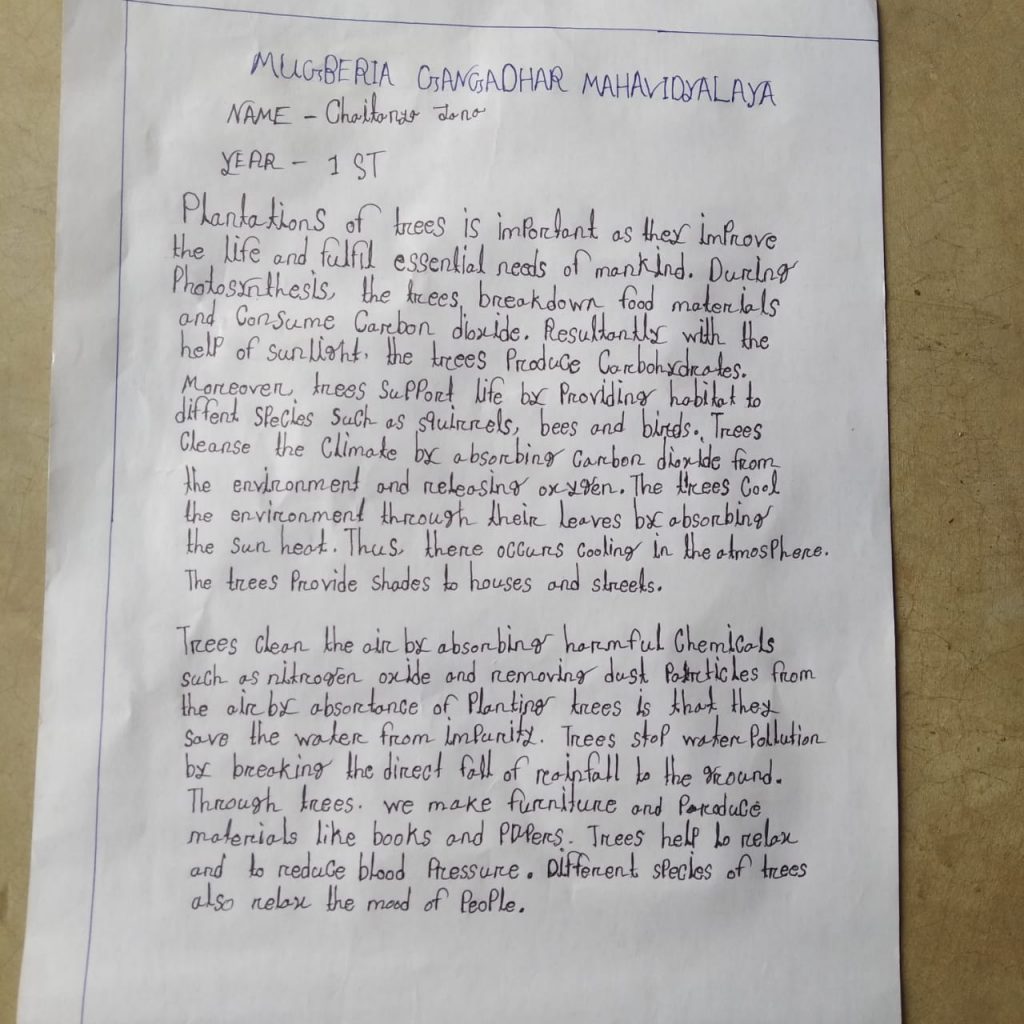 MUGBERIA GANGADHAR MAHAVIDYALAYA
NAME - Chaitanya Jana
YEAR - 1 ST
Plantations of trees is important as they improve
the life and fulfil essential needs of mankind. During
Photosynthesis, the trees breakdown food materials
and Consume Carbon dioxide. Resultantly with the
help of sunlight, the trees Produce Carbohydrates.
Moreover, trees support life by Providing habitat to
diffent species such as squirrels, bees and birds. Trees
Cleanse the Climate by absorbing Carbon dioxide from
the environment and releasing oxygen. The trees Cool
the environment through their leaves by absorbing
the sun heat. Thus, there occurs cooling in the atmosphere.
The trees Provide shades to houses and streets.
Trees clean the air by absorbing harmful Chemicals
such as nitrogen oxide and removing dust Particles from
the air by absortance of Planting trees is that they
save the water from impurity. Trees stop water Pollution
by breaking the direct fall of rainfall to the ground.
Through trees. we make furniture and Produce
materials like books and PaPers. Trees help to relax
and to reduce blood Pressure. Different species of trees
also relax the mood of PeoPle.